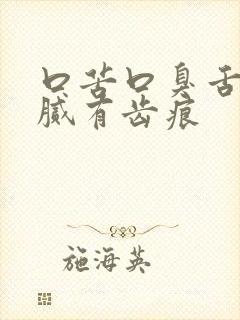 口苦口臭舌
腻有齿痕
施海英